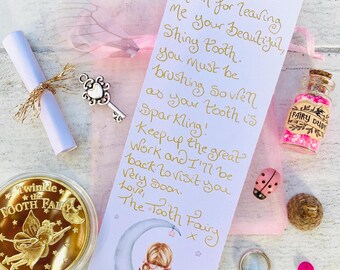 for leaving
me your beautiful,
Shiny tooth.
you must be
brushing so well
as your tooth is
sparkling!
keep up the great
work and I'll be
back to visit you
very soon.
Love,
The Tooth Fairy
x
FAIRY DUST
Twinkle
the
TOOTH FAIRY